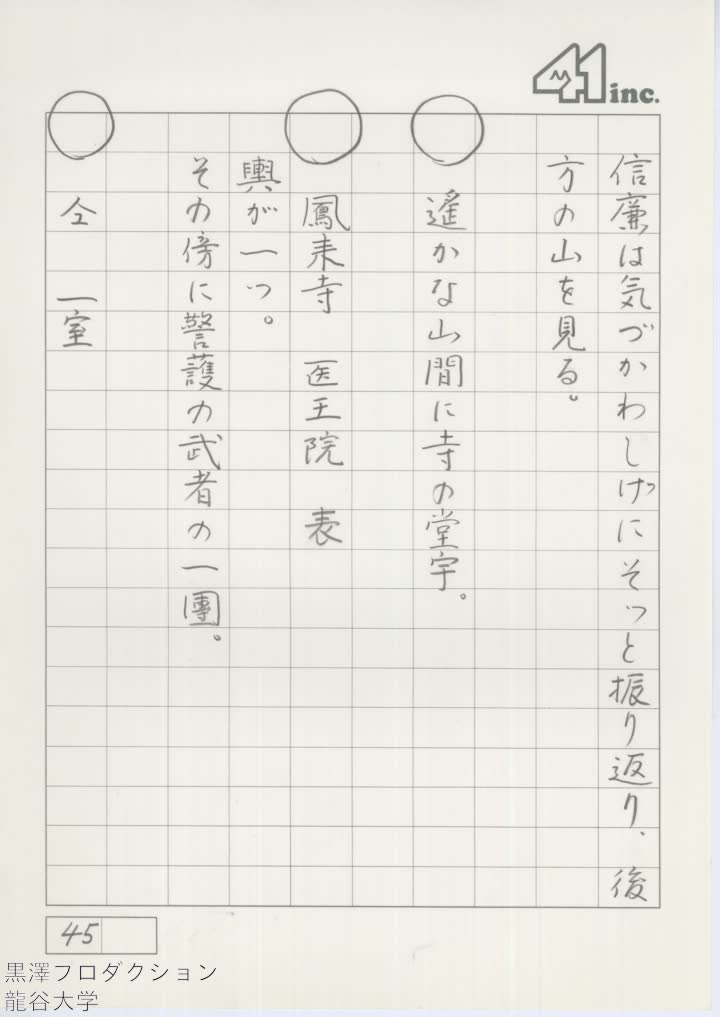 41 inc.
信廉は気づかわしげにそっと振り返り、後
方の山を見る。
○
遙かな山間に寺の堂宇。
○ 鳳来寺 医王院 表
輿が一つ。
その傍に警護の武者の一團。
○ 仝 一室
45
黒澤プロダクション
龍谷大学